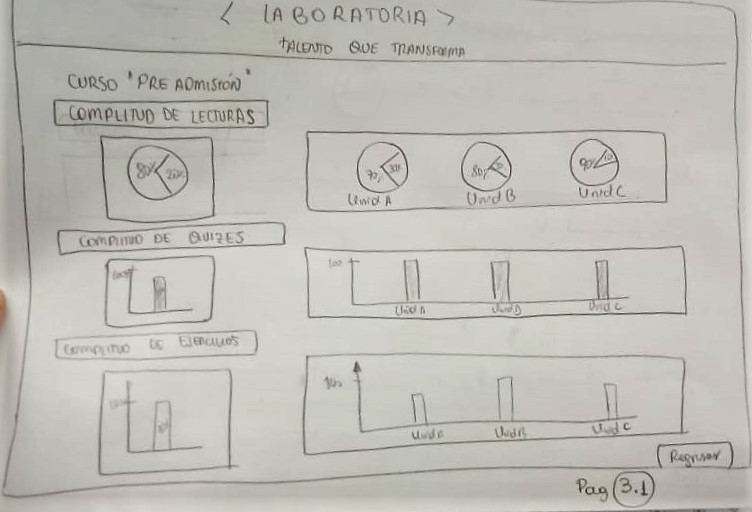 < LABORATORIA >
TALENTO QUE TRANSFORMA
CURSO "PRE ADMISIÓN"
COMPLITUD DE LECTURAS
80%
70% 30%
80%
90% 10
Unid A
Unid B
Unid C
COMPLITUD DE QUIZES
100
Unid A
Unid B
Unid C
COMPLITUD DE EJERCICIOS
100
Unid A
Unid B
Unid C
Regresar
Pag 3.1